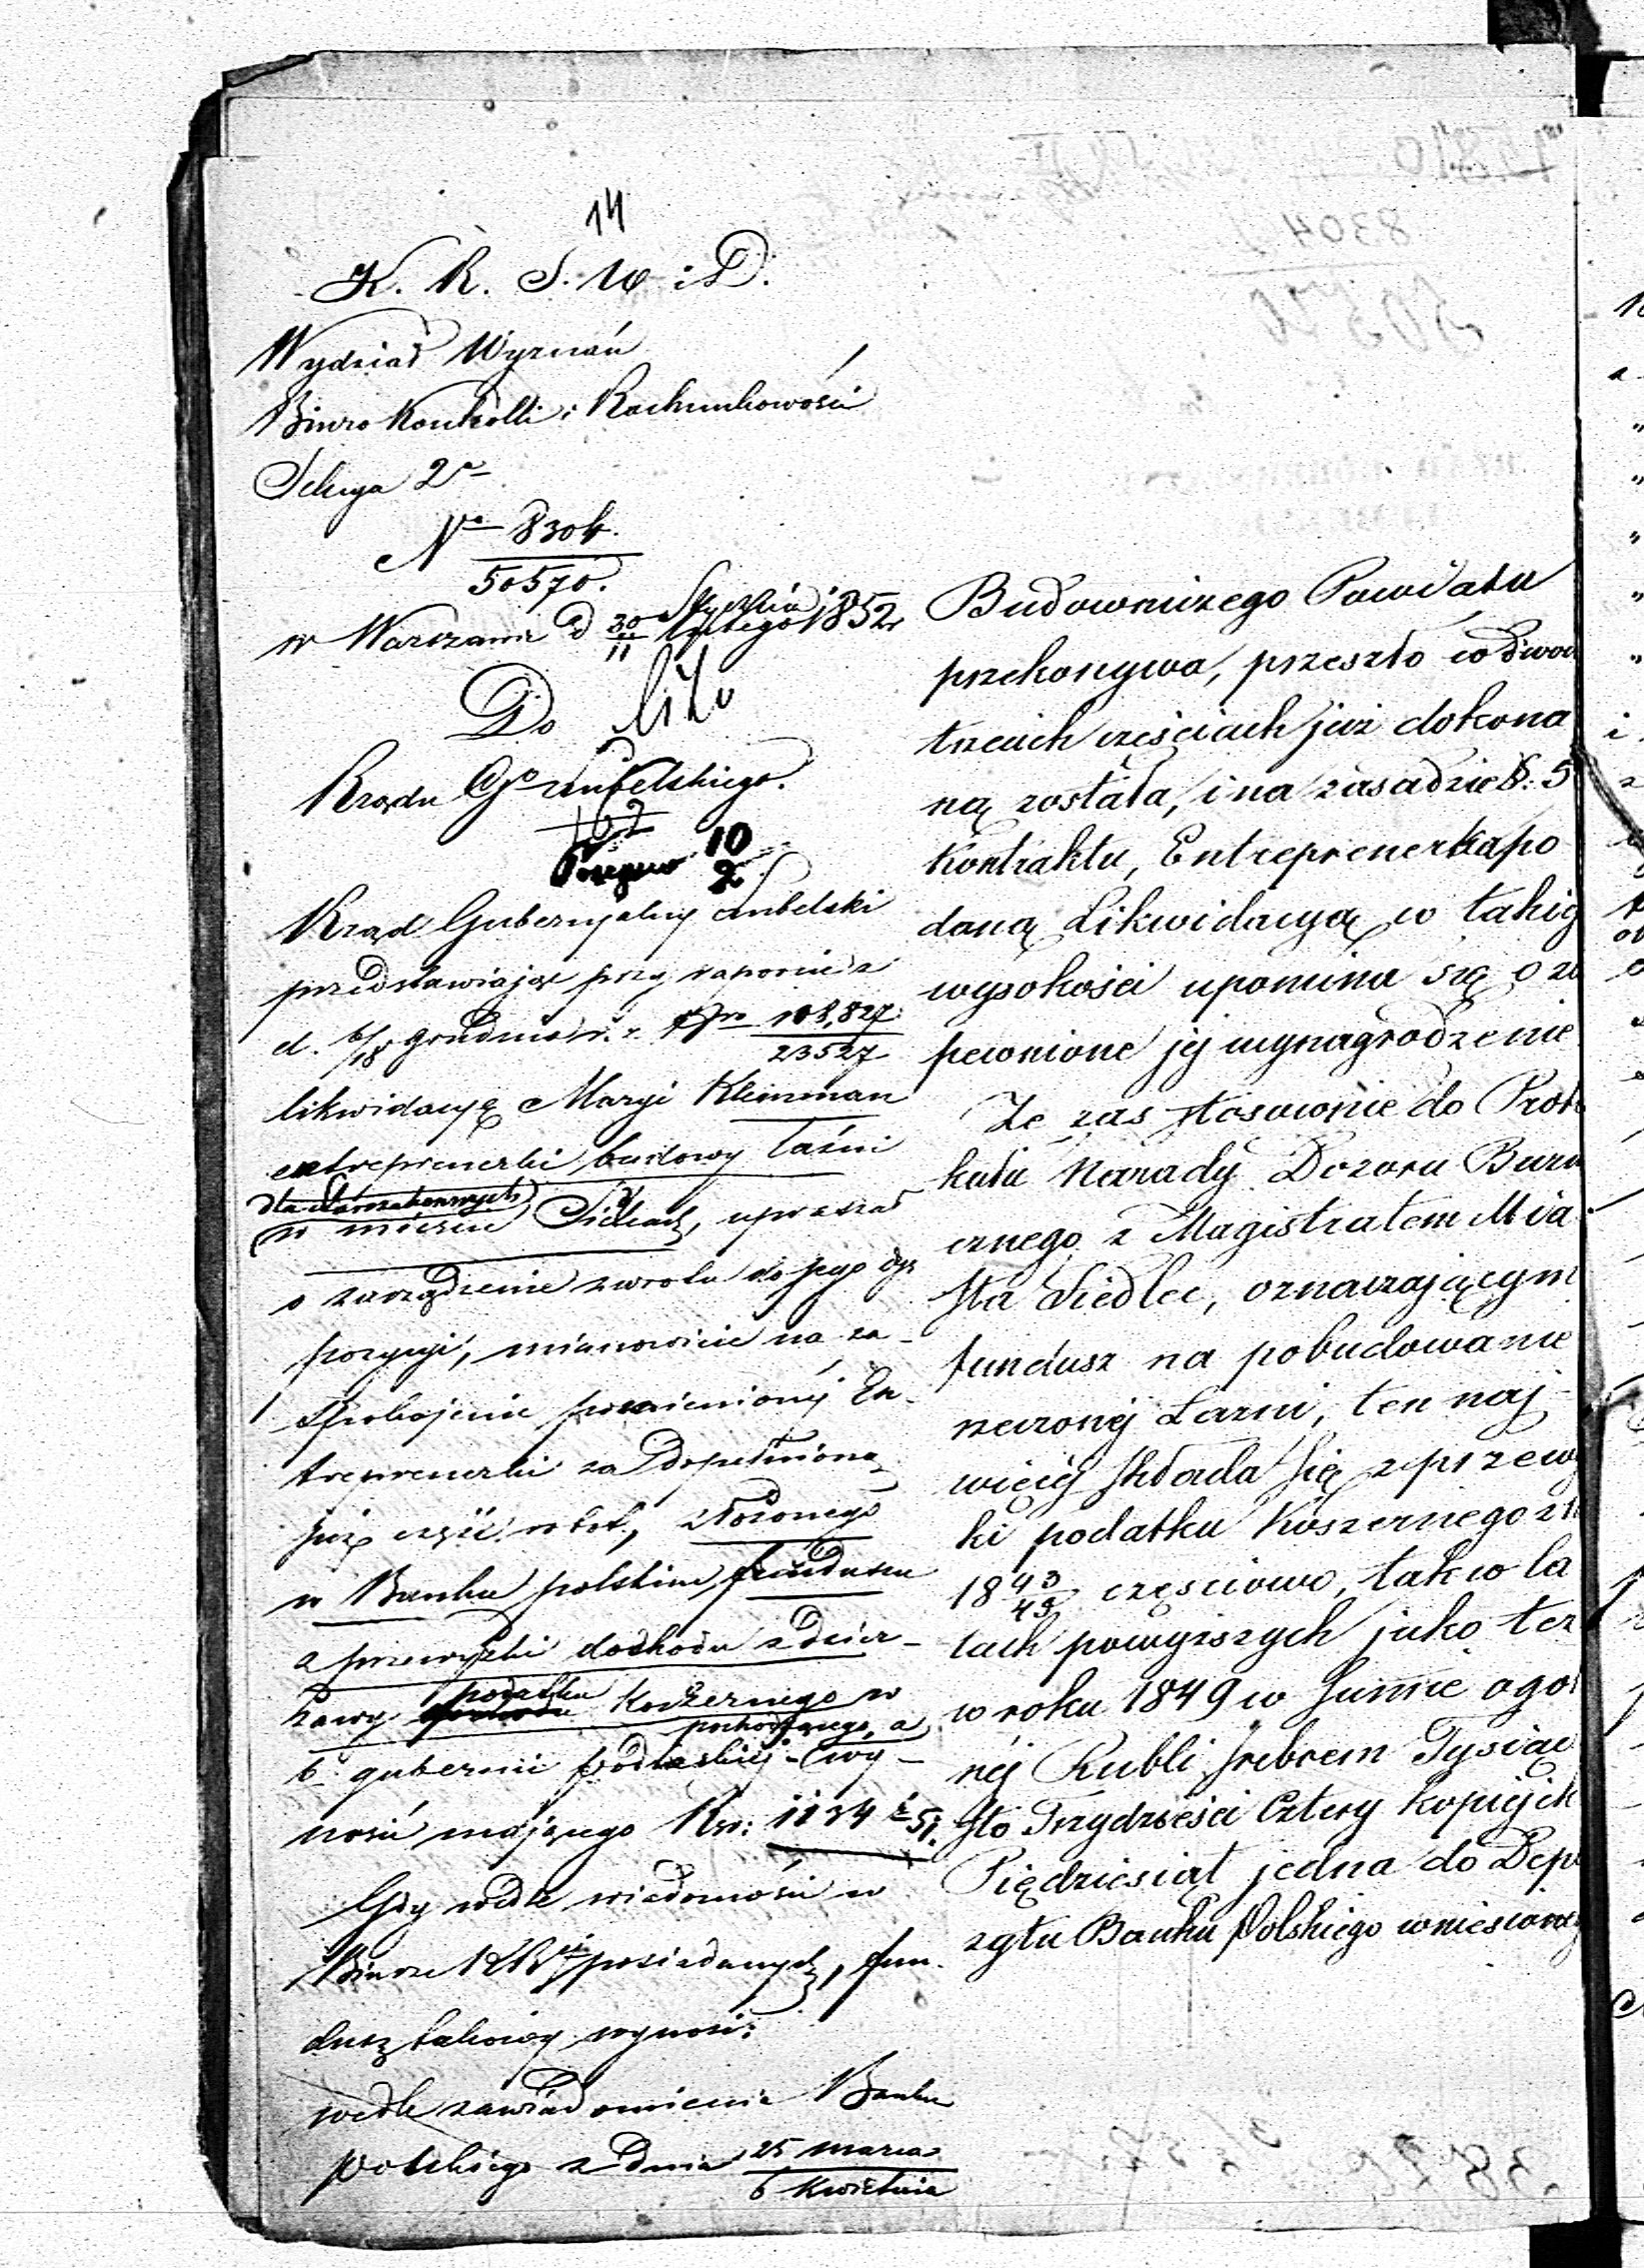 14
K. R. S. W. i D.
Wydział Wyznań
Biuro Kontrolli i Rachunkowości
Sekcya 2a
No 8304.
50570.
w Warszawie d 30/11 Stycznia/Lutego 1852 r
Do
Rządu Go Lubelskiego.
10
2
Rząd Gubernjalny Lubelski
przedstawiając przy raporcie z
d. 6/18 Grudnia r. z. Nro 108,827
23527
likwidacyę Maryi Kleinman
entreprenerki budowy łaźni
dla starozakonnych
w mieście Siedlcach, upraszał
o zarządzenie zwrotu do jego dys
pozycyi, mianowicie na za-
spokojenie pomienionéj En-
treprenerki za dopełnioną
już część robot, złożonego
w Banku polskim, funduszu
z przewyżki dochodu z dzier-
żawy podatku koszernego w
b. gubernii podlaskiej pochodzącego, a wy-
nosić mającego Rsr: 1134 k 51.
Gdy wedle wiadomości w
Biurze KR posiadanych, fun-
dusz takowy wynosi:
wedle zawiadomienia Banku
Polskiego z dnia 25 marca
6 Kwietnia
Budowniczego Powiatu
przekonywa, przeszło w dwoch
trzecich częściach już dokona
ną została, i na zasadzie §: 5
Kontraktu, Entreprenerka po
daną Likwidacyą w takiej
wysokości upomina się o za
pewnione jej wynagrodzenie
Ze zas stosownie do Proto
kułu Narady Dozoru Bużni
cznego z Magistratem Mia
sta Siedlec, oznaczającym
fundusz na pobudowanie
rzeczonéj Łazni, ten naj-
więcéj składa się z przewyż
ki podatku Koszernego z r
18 43/45 częsciowo, tak w la
tach powyzszych jako tez
w roku 1849 w Summie ogol
néj Rubli srebrem Tysiąc
sto Trzydzieści Cztery Kopiejek
Pięćdziesiąt jedna do Depo
zytu Banku Polskiego wniesionej